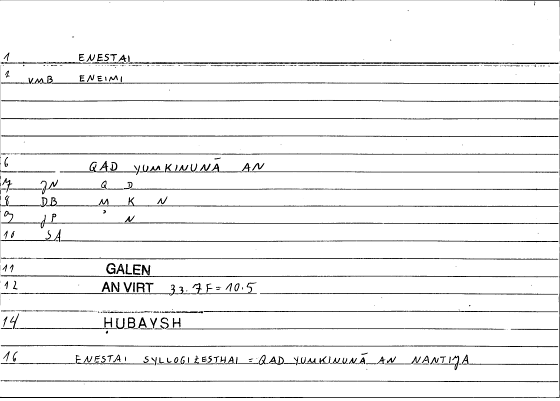 1 ENESTAI
2 VMB ENEIMI
6 QAD YUMKINUNĀ AN
7 JN Q D
8 DB M K N
9 JP ʾ N
10 SA
11 GALEN
12 AN VIRT 33.7F=10.5
14 ḤUBAYSH
16 ENESTAI SYLLOGIZESTHAI = QAD YUMKINUNĀ AN NANTIJA